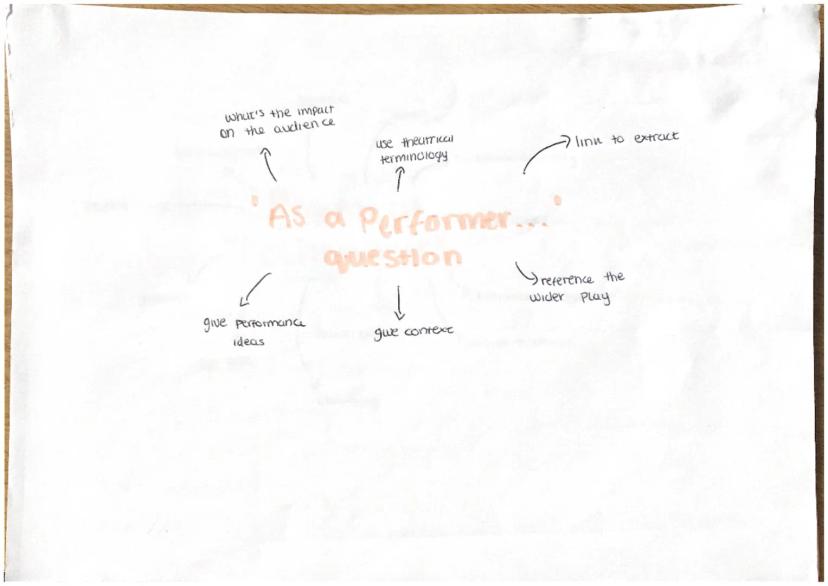 what's the impact
on the audience
use theatrical
terminology
link to extract
'As a Performer...'
question
reference the
wider play
give performance
ideas
give context